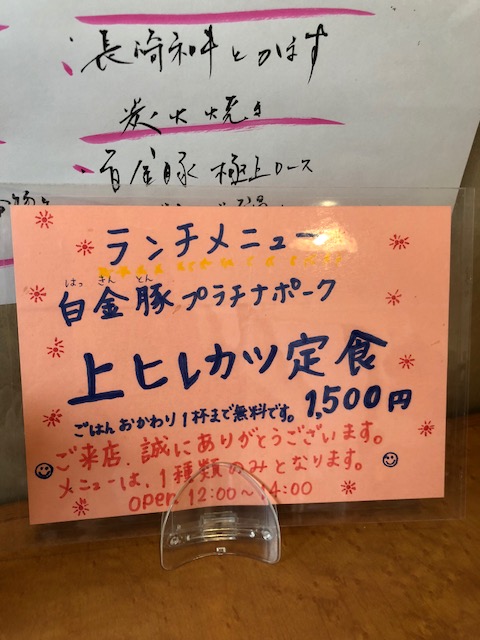 長崎和牛とかます
炭火焼き
白金豚 極上ロース
ランチメニュー
はっ きん とん
白金豚プラチナポーク
上ヒレカツ定食
ごはんおかわり1杯まで無料です。 1,500円
ご来店、誠にありがとうございます。
メニューは、1種類のみとなります。
open 12:00〜14:00